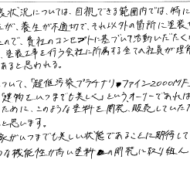 装状況については、目視できる範囲では、特に
が、養生が不適切で、それ以外の箇所に塗装
ので、貴社のコンセプトに基づいて活動いただく
、塗装工事を行う会社に所属する全ての社員が理解
あると思われる。
ついて、「超低汚染プラチナリファイン2000M
「建物をいつまでも美しく」というオーナー
ために、このような塗料を開発、販売していた
と思います。
がいつまでも美しい状態であることに期待して
な機能性が高い塗料の開発に取り組ん